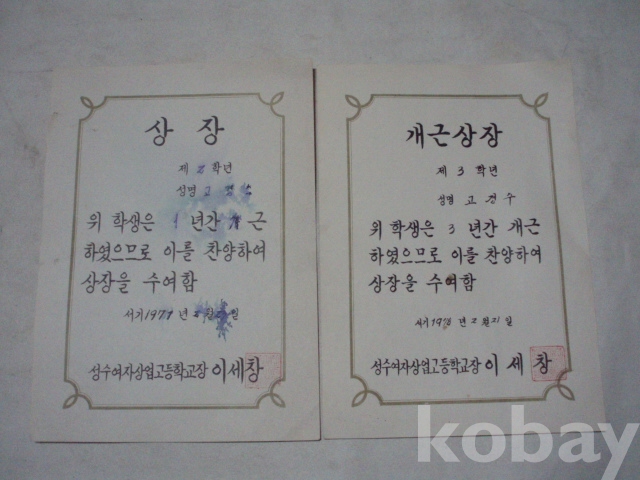 상 장
제 2 학년
성명 고경수
위 학생은 1 년간 개근
하였으므로 이를 찬양하여
상장을 수여함
서기 197 년 2 월 일
성수여자상업고등학교장 이세창
개근상장
제 3 학년
성명 고경수
위 학생은 3 년간 개근
하였으므로 이를 찬양하여
상장을 수여함
서기 19 년 2 월 21 일
성수여자상업고등학교장 이세창
kobay